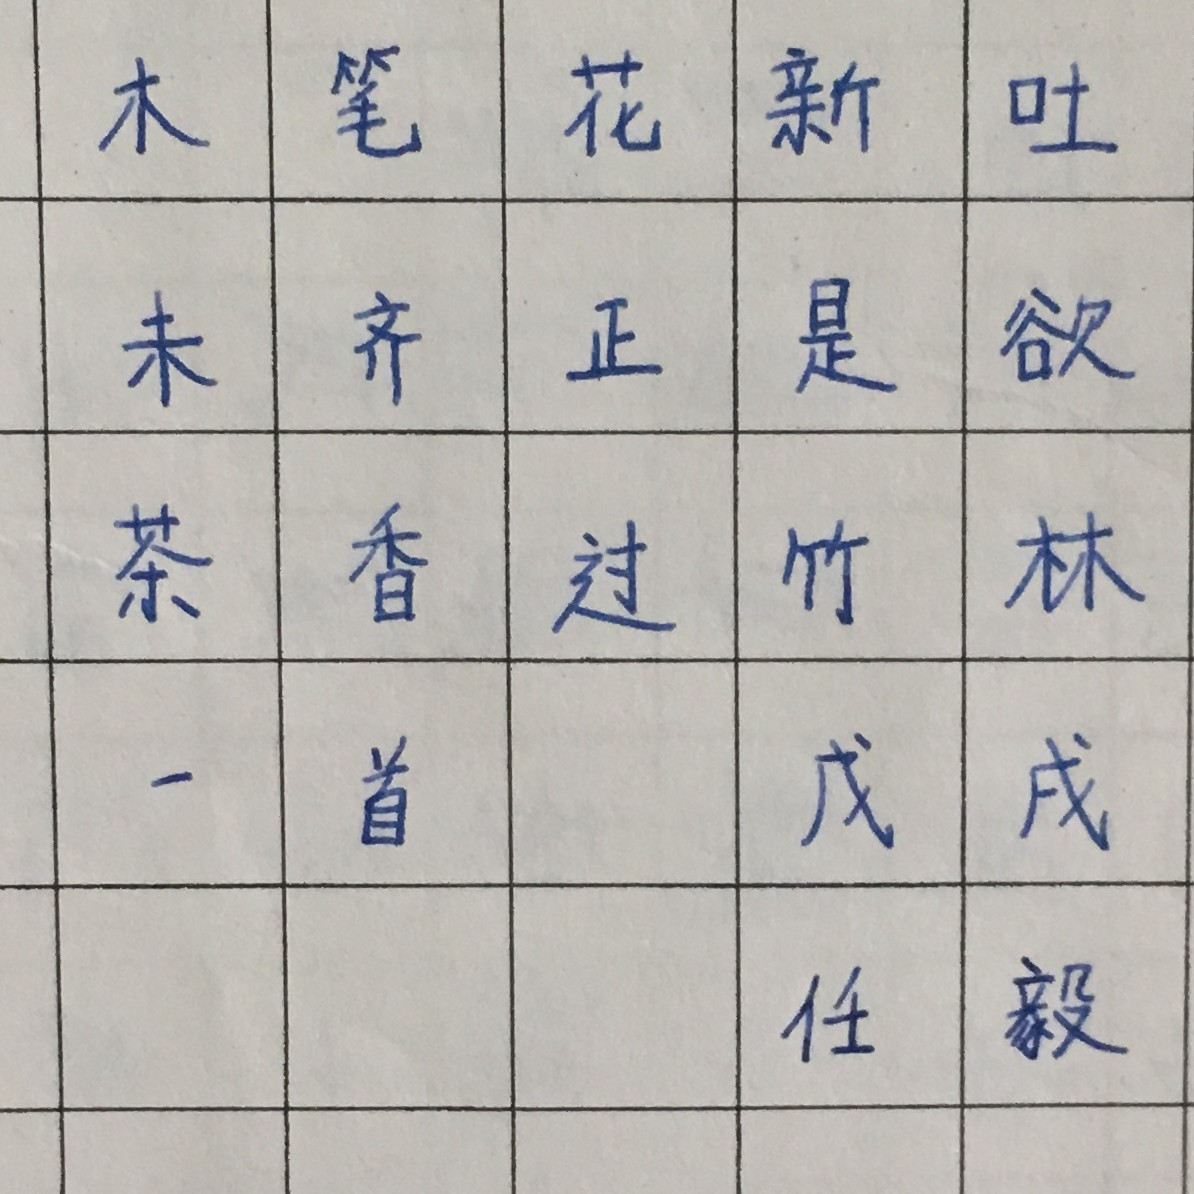 木笔花新吐
未齐正是欲
茶香过竹林
一首 戊戌
任毅